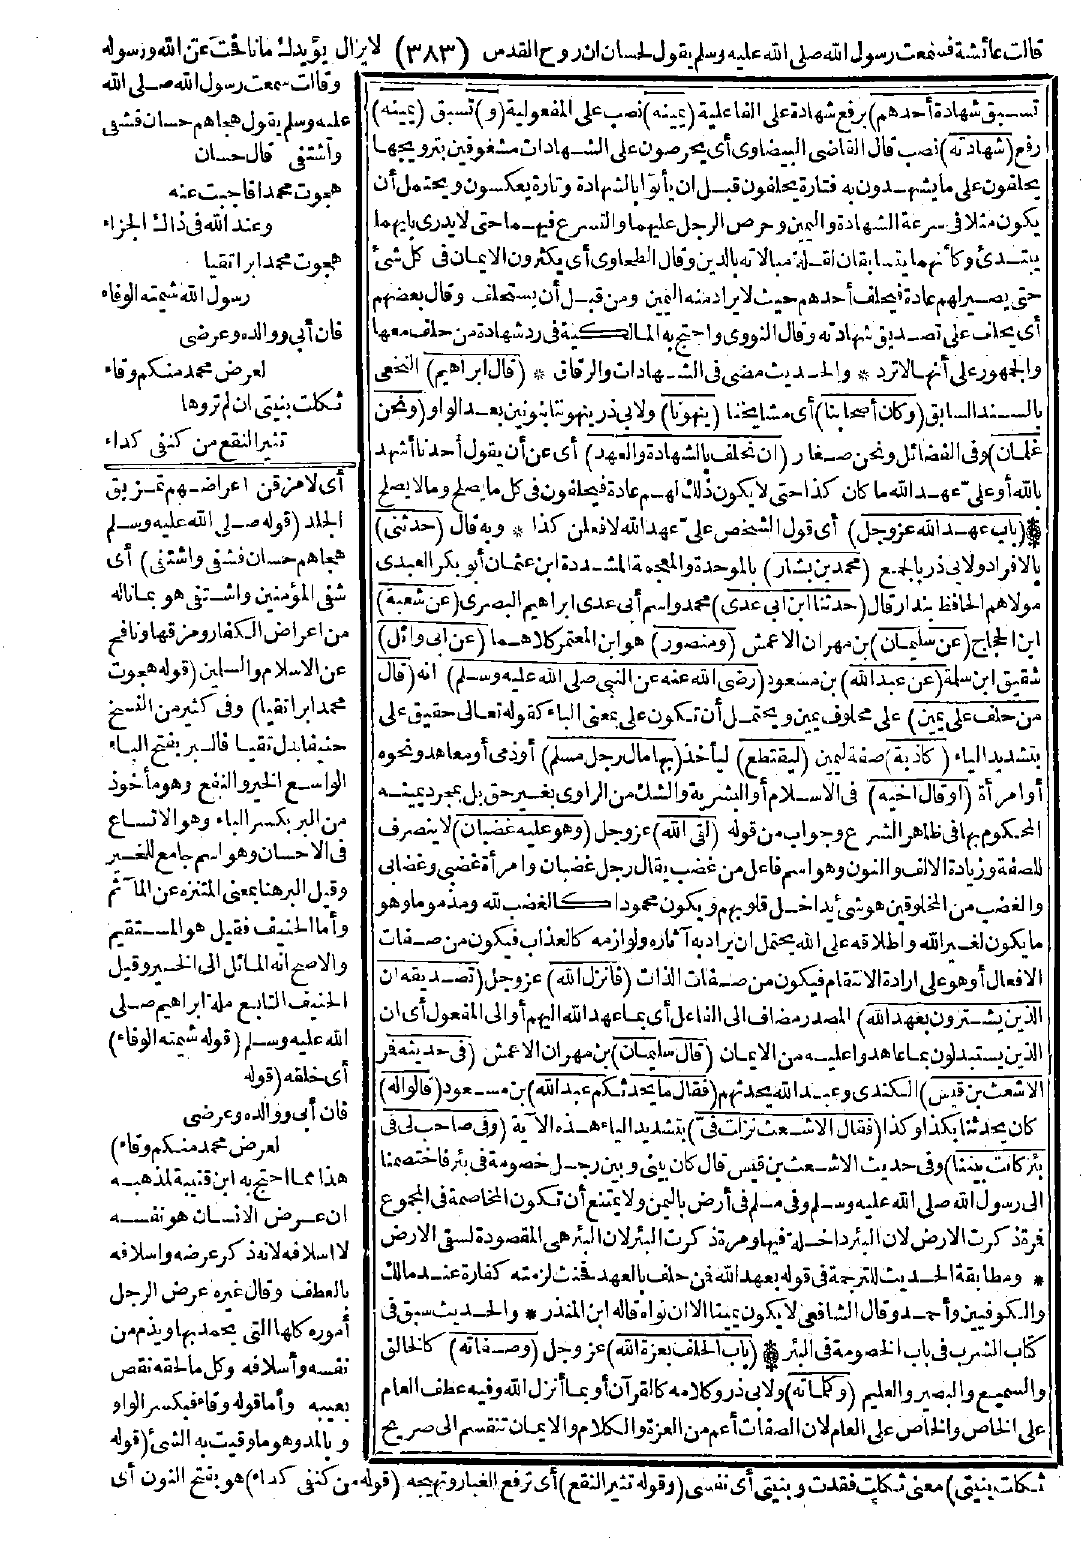 قالت عائشة فسمعت رسول الله صلى الله عليه وسلم يقول لحسان ان روح القدس (٣٨٣) لا يزال يؤيدك ما نافحت عن الله ورسوله
تسبق شهادة أحدهم) برفع شهادة على الفاعلية (يمينه) نصب على المفعولية (و) تسبق (يمينه)
رفع (شهادته) نصب قال القاضي البيضاوى أى يحرصون على الشهادات مشغوفين بترويجها
يحلفون على ما يشهدون به فتارة يحلفون قبل ان يأتوا بالشهادة وتارة يعكسون ويحتمل أن
يكون مثلا فى سرعة الشهادة واليمين وحرص الرجل عليهما والتسرع فيهما حتى لا يدرى بايهما
يبتدئ وكأنهما يتسابقان لقلة مبالاته بالدين وقال الطحاوى أى يكثرون الايمان فى كل شئ
حتى يصير لهم عادة فيحلف أحدهم حيث لا يراد منه اليمين ومن قبل أن يستحلف وقال بعضهم
أى يحلف على تصديق شهادته وقال النووى واحتج به المالكية فى رد شهادة من حلف معها
والجمهور على أنها لا ترد * والحديث مضى فى الشهادات والرقاق * (قال ابراهيم) النخعى
بالسند السابق (وكان أصحابنا) أى مشايخنا (ينهونا) ولابى ذر ينهوننا بنونين بعد الواو (ونحن
غلمان) وفى الفضائل ونحن صغار (ان نحلف بالشهادة والعهد) أى عن أن يقول أحدنا أشهد
بالله أو على عهد الله ما كان كذا حتى لا يكون ذلك لهم عادة فيحلفون فى كل ما يصلح وما لا يصلح
(باب عهد الله عز وجل) أى قول الشخص على عهد الله لافعلن كذا * وبه قال (حدثنى)
بالافراد ولابى ذر بالجمع (محمد بن بشار) بالموحدة والمعجمة المشددة ابن عثمان أبو بكر العبدى
مولاهم الحافظ بندار قال (حدثنا ابن ابى عدى) محمد واسم أبى عدى ابراهيم البصرى (عن شعبة)
ابن الحجاج (عن سليمان) بن مهران الاعمش (ومنصور) هو ابن المعتمر كلاهما (عن ابى وائل)
شقيق ابن سلمة (عن عبدالله) بن مسعود (رضى الله عنه عن النبى صلى الله عليه وسلم) انه (قال
من حلف على يمين) على محلوف يمين ويحتمل أن تكون على بمعنى الباء كقوله تعالى حقيق على
بتشديد الياء (كاذبة) صفة ليمين (ليقتطع) ليأخذ (بها مال رجل مسلم) أو ذمى أو معاهد ونحوه
أو امرأة (او قال اخيه) فى الاسلام أو البشرية والشك من الراوى بغير حق بل بمجرد يمينه
المحكوم بها فى ظاهر الشرع وجواب من قوله (لقى الله) عز وجل (وهو عليه غضبان) لا ينصرف
للصفة وزيادة الالف والنون وهو اسم فاعل من غضب يقال رجل غضبان وامرأة غضبى وغضابى
والغضب من المخلوقين هو شئ يداخل قلوبهم ويكون محمودا كالغضب لله ومذموما وهو
ما يكون لغير الله واطلاقه على الله يحتمل ان يراد به آثاره ولوازمه كالعذاب فيكون من صفات
الافعال أو هو على ارادة الانتقام فيكون من صفات الذات (فأنزل الله) عز وجل (تصديقه ان
الذين يشترون بعهد الله) المصدر مضاف الى الفاعل أى بما عهد الله اليهم أو الى المفعول أى ان
الذين يستبدلون بما عاهدوا عليه من الايمان (قال سليمان) بن مهران الاعمش (فى حديثه فر
الاشعث بن قيس) الكندى وعبد الله يحدثهم (فقال ما يحدثكم عبدالله) بن مسعود (قالوا له)
كان يحدثنا بكذا وكذا (فقال الاشعث نزلت فىّ) بتشديد الياء هذه الآية (وفى صاحب لى فى
بئر كانت بيننا) وفى حديث الاشعث بن قيس قال كان بينى وبين رجل خصومة فى بئر فاختصمنا
الى رسول الله صلى الله عليه وسلم وفى مسلم فى أرض باليمن ولا يمتنع أن تكون المخاصمة فى المجموع
فمرة ذكرت الارض لان البئر داخلة فيها ومرة ذكرت البئر لان البئر هى المقصودة لسقى الارض
* ومطابقة الحديث للترجمة فى قوله بعهد الله فمن حلف بالعهد فحنث لزمته كفارة عند مالك
والكوفيين وأحمد وقال الشافعى لا يكون يمينا الا ان نواه قاله ابن المنذر * والحديث سبق فى
كتاب الشرب فى باب الخصومة فى البئر (باب الحلف بعزة الله) عز وجل (وصفاته) كالخالق
والسميع والبصير والعليم (وكلماته) ولابى ذر وكلامه كالقرآن أو بما أنزل الله وفيه عطف العام
على الخاص والخاص على العام لان الصفات أعم من العزة والكلام والايمان تنقسم الى صريح
وقالت سمعت رسول الله صلى الله
عليه وسلم يقول هجاهم حسان فشفى
وأشتفى قال حسان
هجوت محمدا فاجبت عنه
وعند الله فى ذاك الجزاء
هجوت محمدا برا تقيا
رسول الله شيمته الوفاء
فان أبى ووالده وعرضى
لعرض محمد منكم وقاء
ثكلت بنيتى ان لم تروها
تثير النقع من كنفى كداء
أى لأمزقن اعراضهم تمزيق
الجلد (قوله صلى الله عليه وسلم
هجاهم حسان فشفى واشتفى) أى
شفى المؤمنين واشتفى هو بما ناله
من اعراض الكفار ومزقها ونافح
عن الاسلام والمسلمين (قوله هجوت
محمدا برا تقيا) وفى كثير من النسخ
حنيفا بدل تقيا فالبر بفتح الباء
الواسع الخير والنفع وهو مأخوذ
من البر بكسر الباء وهو الاتساع
فى الاحسان وهو اسم جامع للخير
وقيل البر هنا بمعنى المتنزه عن المآثم
وأما الحنيف فقيل هو المستقيم
والاصح انه المائل الى الخير وقيل
الحنيف التابع ملة ابراهيم صلى
الله عليه وسلم (قوله شيمته الوفاء)
أى خلقه (قوله
فان أبى ووالده وعرضى
لعرض محمد منكم وقاء)
هذا مما احتج به ابن قتيبة لمذهبه
ان عرض الانسان هو نفسه
لا اسلافه لانه ذكر عرضه واسلافه
بالعطف وقال غيره عرض الرجل
أموره كلها التى يحمد بها ويذم من
نفسه وأسلافه وكل ما لحقه نقص
بعيبه وأما قوله وقاء فبكسر الواو
وبالمد وهو ما وقيت به الشئ (قوله
ثكلت بنيتى) معنى ثكلت فقدت وبنيتى أى نفسى (وقوله تثير النقع) أى ترفع الغبار وتهيجه (قوله من كنفى كداء) هو بفتح النون أى